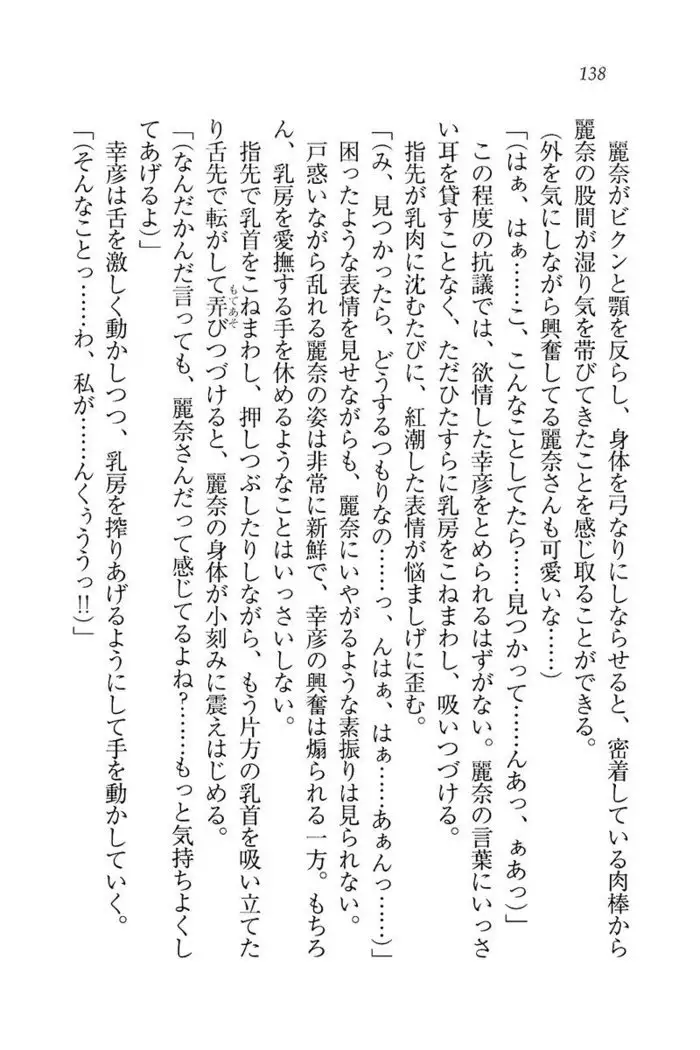 138
麗奈がビクンと顎を反らし、身体を弓なりにしならせると、密着している肉棒から
麗奈の股間が湿り気を帯びてきたことを感じ取ることができる。
(外を気にしながら興奮してる麗奈さんも可愛いな……)
「(はぁ、はぁ……こ、こんなことしてたら……見つかって……んあっ、ぁあっ)」
この程度の抗議では、欲情した幸彦をとめられるはずがない。麗奈の言葉にいっさ
い耳を貸すことなく、ただひたすらに乳房をこねまわし、吸いつづける。
指先が乳肉に沈むたびに、紅潮した表情が悩ましげに歪む。
「(み、見つかったら、どうするつもりなの……っ、んはぁ、はぁ……あぁんっ……)」
困ったような表情を見せながらも、麗奈にいやがるような素振りは見られない。
戸惑いながら乱れる麗奈の姿は非常に新鮮で、幸彦の興奮は煽られる一方。もちろ
ん、乳房を愛撫する手を休めるようなことはいっさいしない。
指先で乳首をこねまわし、押しつぶしたりしながら、もう片方の乳首を吸い立てた
り舌先で転がして弄もてあそびつづけると、麗奈の身体が小刻みに震えはじめる。
「(なんだかんだ言っても、麗奈さんだって感じてるよね?……もっと気持ちよくし
てあげるよ)」
幸彦は舌を激しく動かしつつ、乳房を搾りあげるようにして手を動かしていく。
「(そんなことっ……わ、私が……んくぅううっ!!)」